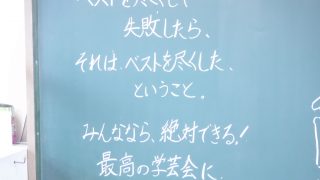 ベストを尽くして
失敗したら、
それは、ベストを尽くした、
ということ。
みんななら、絶対できる!
最高の学芸会に